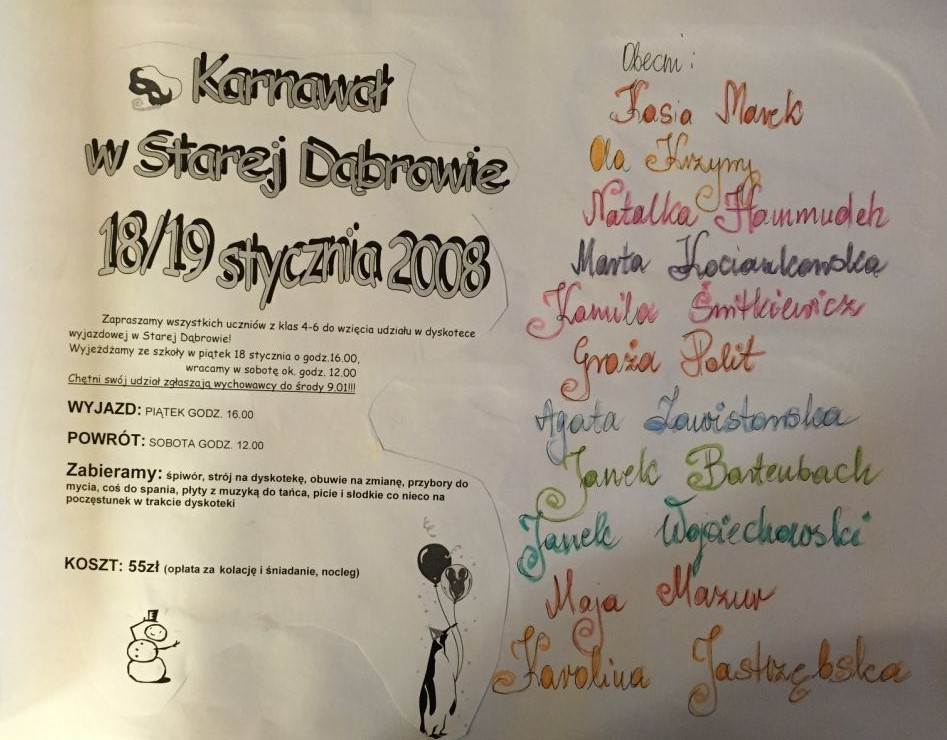 Karnawał
w Starej Dąbrowie
18/19 stycznia 2008
Zapraszamy wszystkich uczniów z klas 4-6 do wzięcia udziału w dyskotece
wyjazdowej w Starej Dąbrowie!
Wyjeżdżamy ze szkoły w piątek 18 stycznia o godz.16.00,
wracamy w sobotę ok. godz. 12.00
Chętni swój udział zgłaszają wychowawcy do środy 9.01!!!
WYJAZD: PIĄTEK GODZ. 16.00
POWRÓT: SOBOTA GODZ. 12.00
Zabieramy: śpiwór, strój na dyskotekę, obuwie na zmianę, przybory do
mycia, coś do spania, płyty z muzyką do tańca, picie i słodkie co nieco na
poczęstunek w trakcie dyskoteki
KOSZT: 55zł (opłata za kolację i śniadanie, nocleg)
Obecni:
Kasia Marek
Ola Krzymy
Natalka Hammudeh
Marta Kociankowska
Kamila Śmitkiewicz
Graża Polit
Agata Zawistowska
Janek Bartenbach
Janek Wojciechowski
Maja Mazur
Karolina Jastrzębska